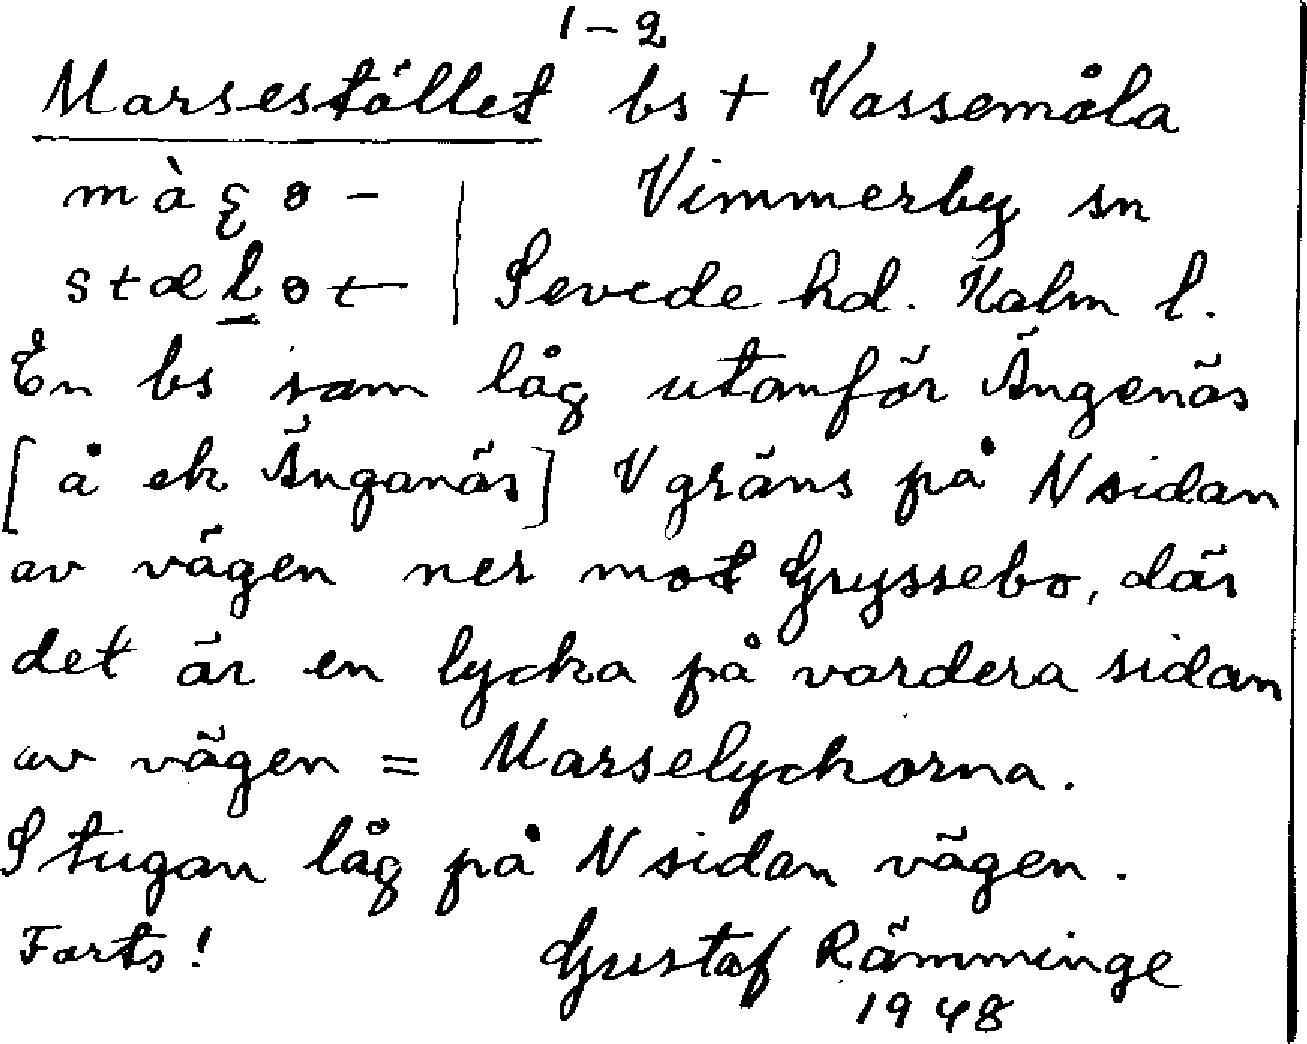 1-2
Marsestället bs + Vassemåla
Vimmerby sn
Sevede hd. Kalm l.
En bs som låg utanför Ängenäs
[å ek Änganäs] V gräns på N sidan
av vägen ner mot Gryssebo, där
det är en lycka på vardera sidan
av vägen = Marselyckorna.
Stugan låg på N sidan vägen.
Forts! Gustaf Rämminge
1948